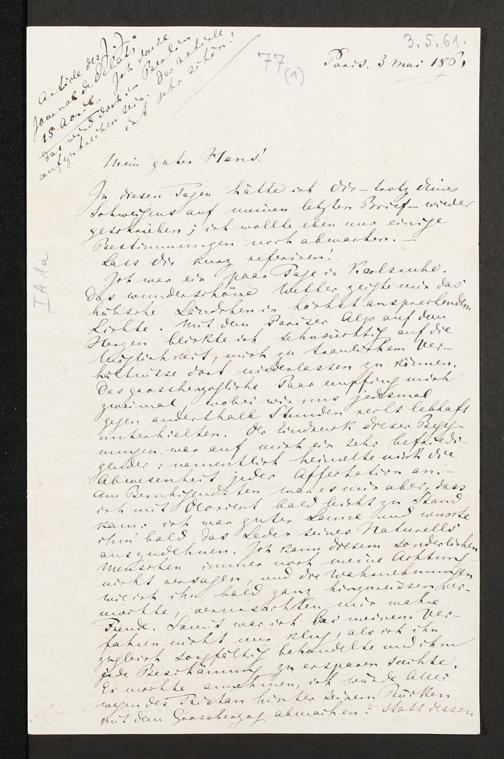 3.5.61.
77
(1)
Paris. 3 Mai 1861
Artikel des J. J.
Journal des Débats
15 April. Ich denke
das wird doch in Berlin
aufzutreiben sein. Der Artikel
ist sehr schön!
I A 1a
Mein guter Hans!
In diesen Tagen hätte ich Dir – trotz deines
Schweigens auf meinen letzten Brief – wieder
geschrieben; ich wollte eben nur einige
Bestimmungen noch abwarten. –
Lass dir kurz referiren!
Ich war ein paar Tage in Karlsruhe.
Das wunderschöne Wetter zeigte mir das
hübsche Ländchen in höchst ansprechendem
Lichte. Mit dem Pariser Alp auf dem
Herzen blickte ich sehnsüchtig auf die
Möglichkeit, mich zu traulichem Ver-
hältnisse dort niederlassen zu können.
Das grossherzogliche Paar empfing mich
zweimal, wobei wir uns jedesmal
gegen anderthalb Stunden recht lebhaft
unterhielten. Der Eindruck dieser Begeg-
nungen war auf mich ein sehr befriedi-
gender: namentlich heimelte mich die
Abwesenheit jeder Affectation an. –
Am Beruhigendsten war es mir aber, dass
ich mit Devrient bald leicht zu Stand
kam: ich war guter Laune und wusste
ihm bald das Leder seines Naturells
auszudehnen. Ich kann diesem sonderlichen
Menschen immer noch meine Achtung
nicht versagen, und die Wahrnehmungen
wie ich ihn bald ganz hinzureissen ver-
mochte, verursachten mir wahre
Freude. Somit war ich bei meinem Ver-
fahren nicht nur klug, als ich ihn
zugleich sorgfältig behandelte und ihm
jede Beschämung zu ersparen suchte.
Er mochte annehmen, ich würde Alles
wegen des Tristan hinter seinem Rücken
mit dem Grossherzog abmachen: statt dessen